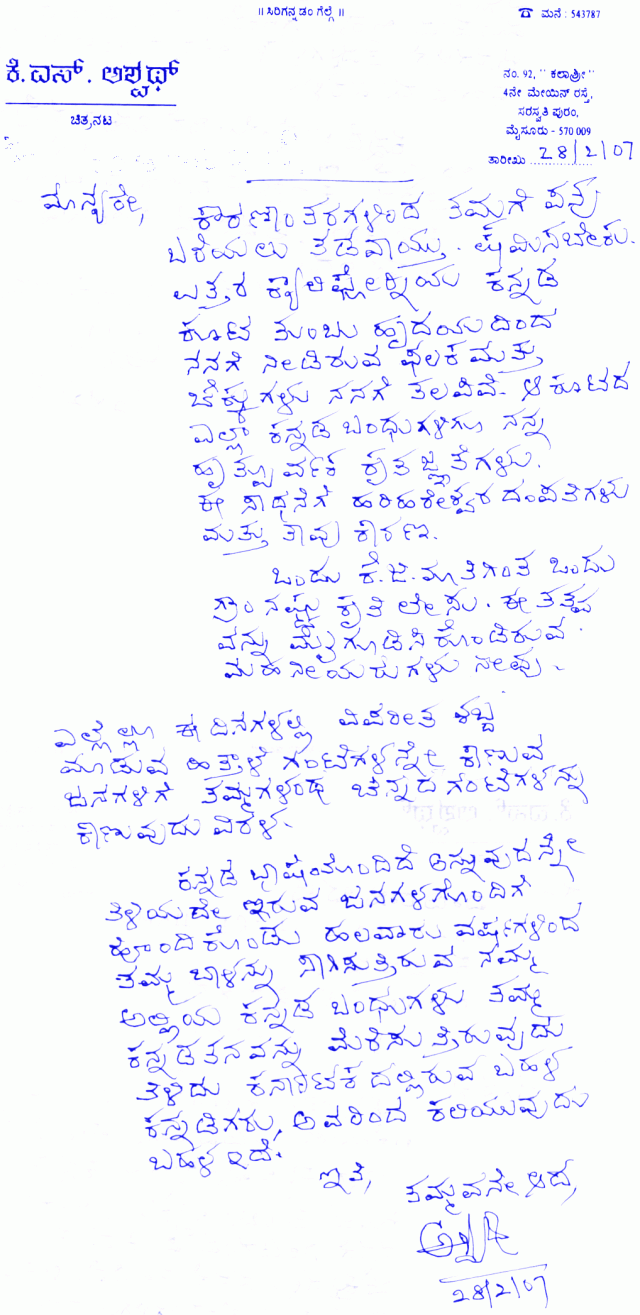 ॥ ಸಿರಿಗನ್ನಡಂ ಗೆಲ್ಗೆ ॥
☎ ಮನೆ : 543787
ಕೆ. ಎಸ್. ಅಶ್ವಥ್
ಚಿತ್ರನಟ
ನಂ. 92, " ಕಲಾಶ್ರೀ "
4ನೇ ಮೇಯಿನ್ ರಸ್ತೆ,
ಸರಸ್ವತಿ ಪುರಂ,
ಮೈಸೂರು - 570 009
ತಾರೀಖು 28/2/07
ಮಾನ್ಯರೇ,
ಕಾರಣಾಂತರಗಳಿಂದ ತಮಗೆ ಪತ್ರ
ಬರೆಯಲು ತಡವಾಯ್ತು. ಕ್ಷಮಿಸಬೇಕು.
ಉತ್ತರ ಕ್ಯಾಲಿಫೋರ್ನಿಯ ಕನ್ನಡ
ಕೂಟ ತುಂಬು ಹೃದಯದಿಂದ
ನನಗೆ ನೀಡಿರುವ ಫಲಕ ಮತ್ತು
ಚೆಕ್ಕುಗಳು ನನಗೆ ತಲಪಿವೆ. ಆ ಕೂಟದ
ಎಲ್ಲಾ ಕನ್ನಡ ಬಂಧುಗಳಿಗೂ ನನ್ನ
ಹೃತ್ಪೂರ್ವಕ ಕೃತಜ್ಞತೆಗಳು.
ಈ ಸಾಧನೆಗೆ ಹರಿಹರೇಶ್ವರ ದಂಪತಿಗಳು
ಮತ್ತು ತಾವು ಕಾರಣ.
ಒಂದು ಕೆ.ಜಿ. ಮಾತಿಗಿಂತ ಒಂದು
ಗ್ರಾಂನಷ್ಟು ಕೃತಿ ಲೇಸು. ಈ ತತ್ವ
ವನ್ನು ಮೈಗೂಡಿಸಿಕೊಂಡಿರುವ
ಮಹನೀಯರುಗಳು ನೀವು.
ಎಲ್ಲೆಲ್ಲೂ ಈ ದಿನಗಳಲ್ಲಿ ವಿಪರೀತ ಶಬ್ದ
ಮಾಡುವ ಹಿತ್ತಾಳೆ ಗಂಟೆಗಳನ್ನೇ ಕಾಣುವ
ಜನಗಳಿಗೆ ತಮ್ಮಗಳಂಥ ಚಿನ್ನದ ಗಂಟೆಗಳನ್ನು
ಕಾಣುವುದು ವಿರಳ.
ಕನ್ನಡ ಭಾಷೆಯೊಂದಿದೆ ಅನ್ನುವುದನ್ನೇ
ತಿಳಿಯದೇ ಇರುವ ಜನಗಳೊಂದಿಗೆ
ಹೊಂದಿಕೊಂಡು ಹಲವಾರು ವರ್ಷಗಳಿಂದ
ತಮ್ಮ ಬಾಳನ್ನು ಸಾಗಿಸುತ್ತಿರುವ ನಮ್ಮ
ಅಲ್ಲಿಯ ಕನ್ನಡ ಬಂಧುಗಳು ತಮ್ಮ
ಕನ್ನಡತನವನ್ನು ಮೆರೆಸುತ್ತಿರುವುದು
ತಿಳಿದು ಕರ್ನಾಟಕದಲ್ಲಿರುವ ಬಹಳ
ಕನ್ನಡಿಗರು, ಅವರಿಂದ ಕಲಿಯುವುದು
ಬಹಳ ಇದೆ.
ಇತಿ,
ತಮ್ಮವನೇ ಆದ,
28/2/07